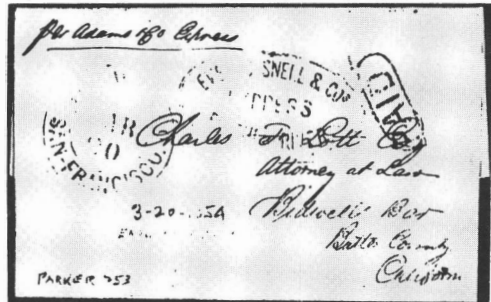 per Adams & Co Express
SNELL & CO's
PRESS
PAID
SAN-FRANCISCO
Charles F. Lott Esq
Attorney at Law
3-20- 54
Bidwell's Bar
Butte County
California
PARKER 753